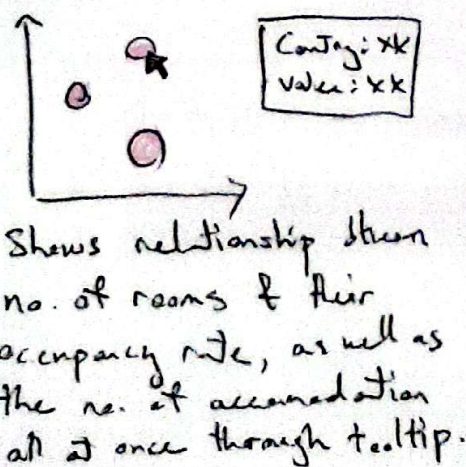 Country: xx
Value: xx
Shows relationship btween
no. of rooms & their
occupancy rate, as well as
the no. of accomodation
all at once through tooltip.